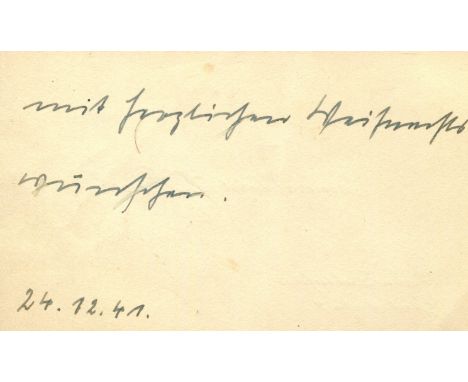 mit herzlichen Weihnachts
wünschen.
24.12.41.